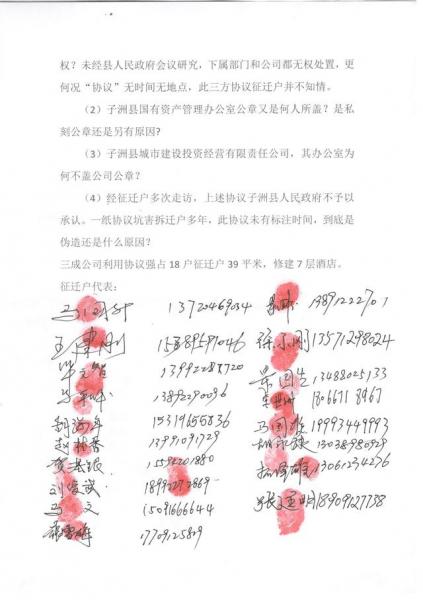 权？未经县人民政府会议研究，下属部门和公司都无权处置，更
何况“协议”无时间无地点，此三方协议征迁户并不知情。
（2）子洲县国有资产管理办公室公章又是何人所盖？是私
刻公章还是另有原因？
（3）子洲县城市建设投资经营有限责任公司，其办公室为
何不盖公司公章？
（4）经征迁户多次走访，上述协议子洲县人民政府不予以
承认。一纸协议坑害拆迁户多年，此协议未有标注时间，到底是
伪造还是什么原因？
三成公司利用协议强占18户征迁户39平米，修建7层酒店。
征迁户代表：
13720469034 13891222701
13571298024
13992288720 13488025133
13892290096
15319655836 马国 19993449993
13991091729 13038980929
15592201880 13061234276
刘 18992272869
马文 15091666644 张 18909127738
17709125809